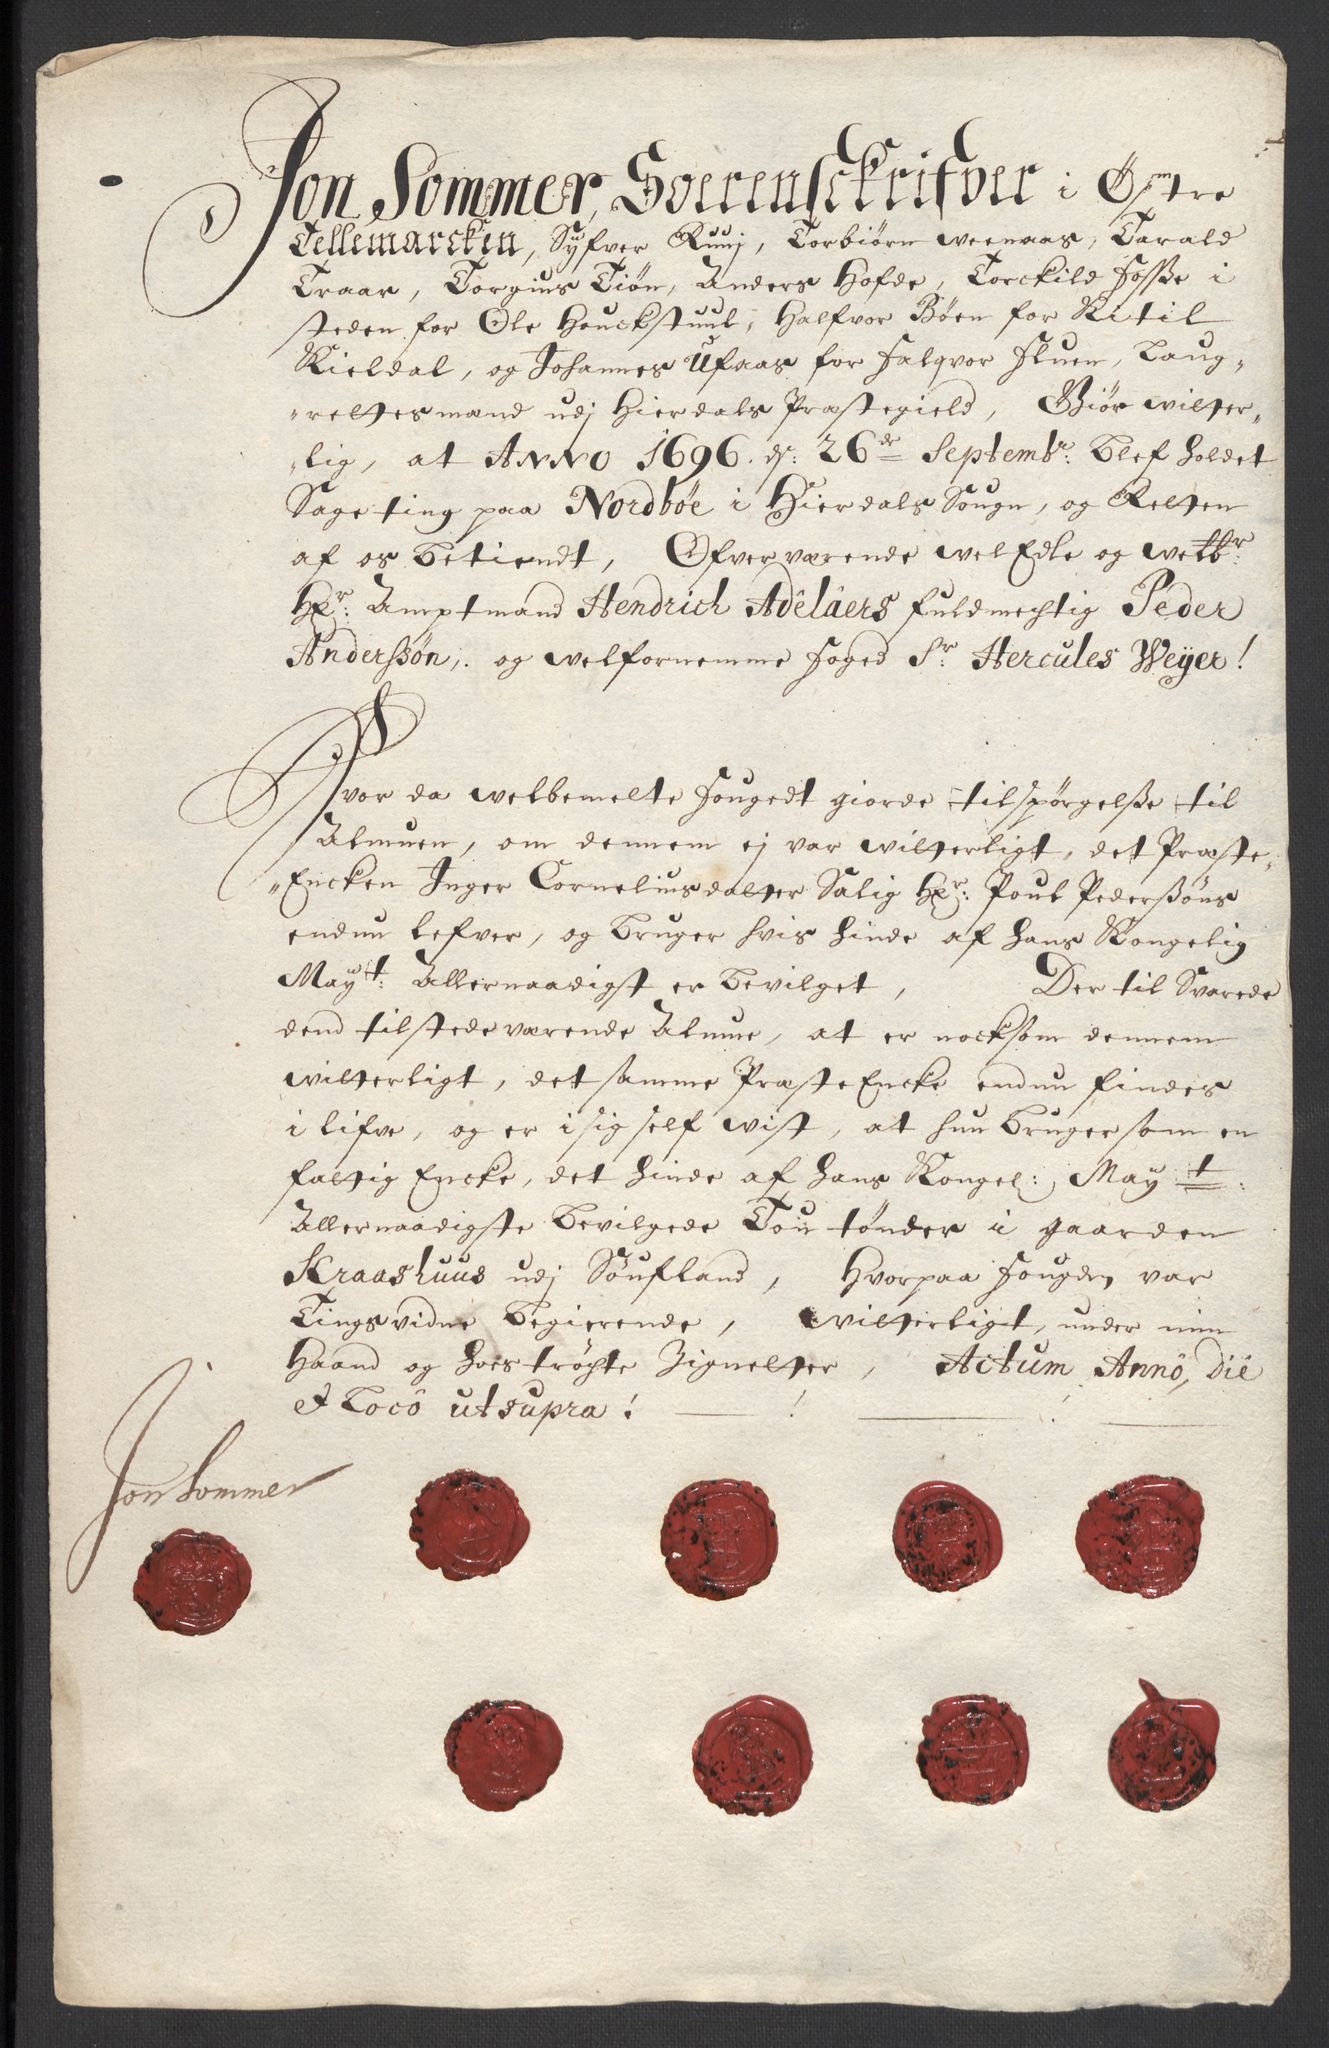 Jon Sommer, Soerenschrifver i Østre
Tellemarcken, Syfver Ruuj, Torbiørn weenaas, Tarald
Traar, Torgius Tiøn, Anders Hofde, Torckild Fosße i
steden for Ole Houckstuul, Halfvor Bøen for Kitil
Kieldal, og Johannes Ufaas for Falqvor Fluen, Laug-
rettes mænd udj Hierdals Præstegield, Giør witter-
lig, at ANNO 1696. d: 26de Septembr: blef holdet
Sageting paa Nordbøe i Hierdals Sougn, og Retten
af os betiendt, Ofverværende wel Edle og welbr:
Hr: Amptmand Hendrich Adelaers fuldmechtig Peder
Anderßøn, og welfornemme foged Sr: Hercules Weÿer!
Hvor da welbemelte fougedt giorde tilspørgelße til
Almuen, om dennem ej var witterligt, det Præste-
Encken Inger Corneliusdatter Salig Hr: Poul Pederßøns
endnu lefver, og bruger hvis hinde af hans Kongelig
Mayt: Allernaadigst er bevilget, Der til Svarede
dend tilstedeværende Almue, at er nocksom dennem
witterligt, det samme Præste Encke endnu findes
i lifve, og er i sig self wist, at hun bruger som en
fattig Encke, det hinde af hans Kongel: Mayt:
Allernaadigste bevilgede Tou tønder i gaarden
Kraashuus udj Søufland, Hvorpaa fougden var
Tingsvidne begierende, witterligt, under min
Haand og hoes trøchte Zignetter, Actum Anno, Die
et Loco ut supra!
Jon Sommer